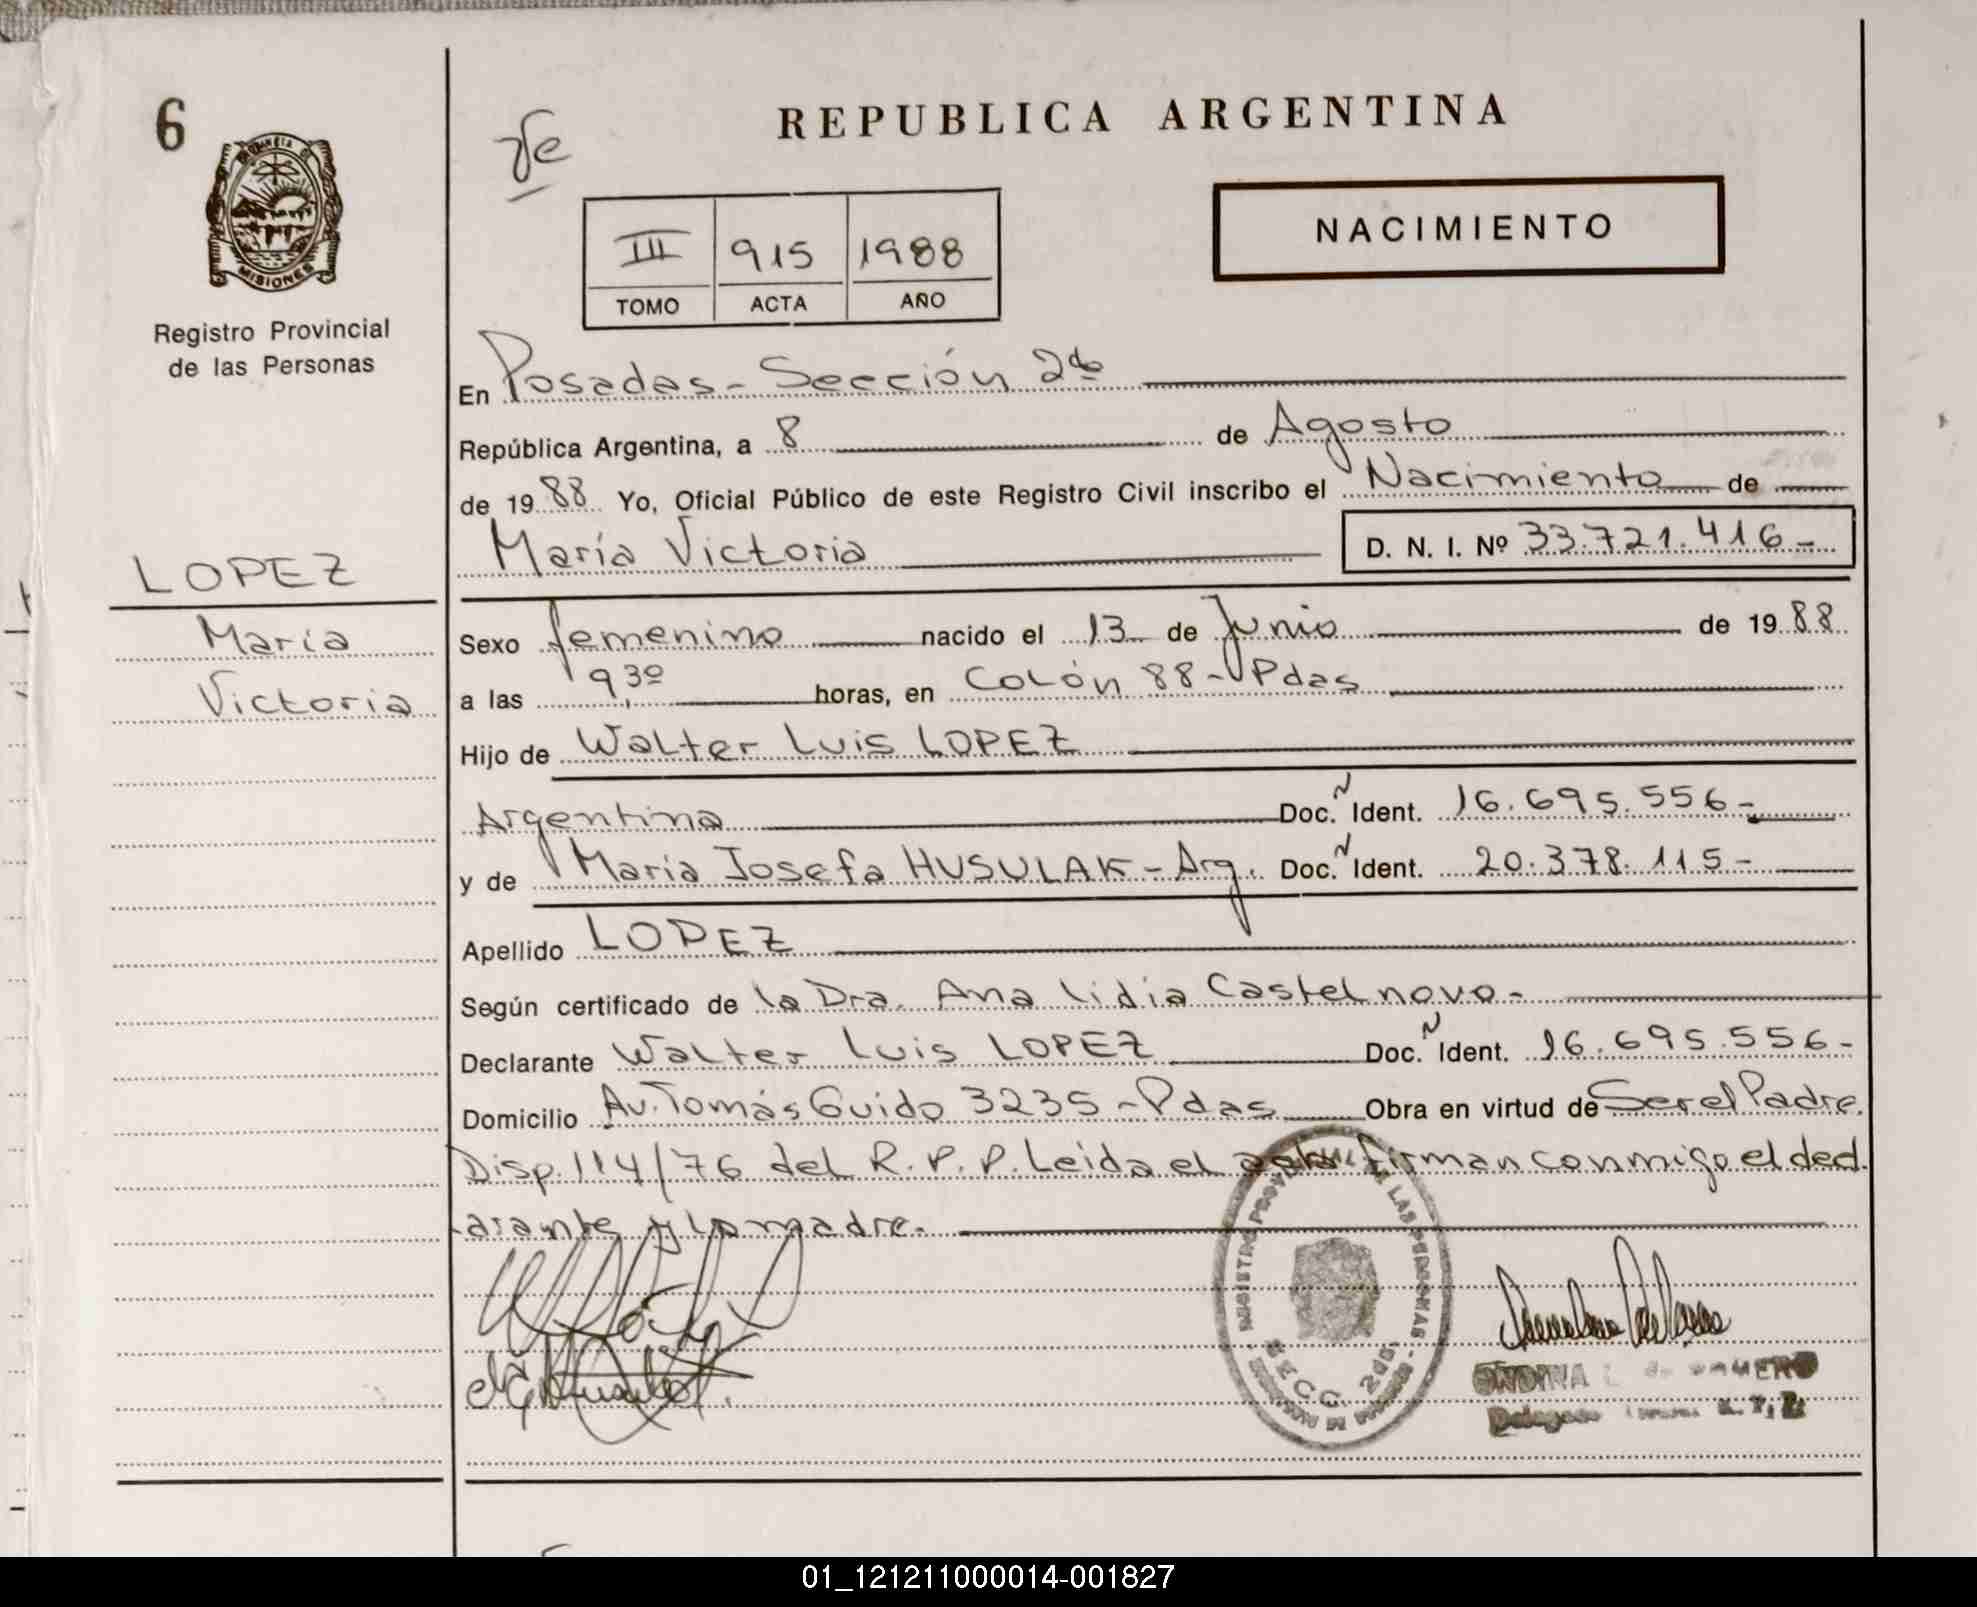 6
REPUBLICA ARGENTINA
NACIMIENTO
PROVINCIA DE
MISIONES
Registro Provincial
de las Personas
III 915 1988
TOMO ACTA AÑO
En Posadas - Sección 2da
República Argentina, a 8 de Agosto
de 1988 Yo, Oficial Público de este Registro Civil inscribo el Nacimiento de
María Victoria D. N. I. Nº 33.721.416-
LOPEZ
María
Victoria
Sexo femenino nacido el 13 de Junio de 1988
a las 9,30 horas, en Colón 88 - Pdas
Hijo de Walter Luis LOPEZ
Argentina Doc. N Ident. 16.695.556-
y de María Josefa HUSULAK - Arg. Doc. N Ident. 20.378.115-
Apellido LOPEZ
Según certificado de la Dra. Ana Lidia Castelnovo-
Declarante Walter Luis LOPEZ Doc. N Ident. 16.695.556-
Domicilio Av. Tomás Guido 3235 - Pdas Obra en virtud de Ser el Padre.
Disp. 114/76 del R.P.P. Leida el acta firman conmigo el decl
arante y la madre.
REGISTRO PROVINCIAL DE LAS PERSONAS
SECC. 2da.
ONDINA L. de
Delegado
01_121211000014-001827